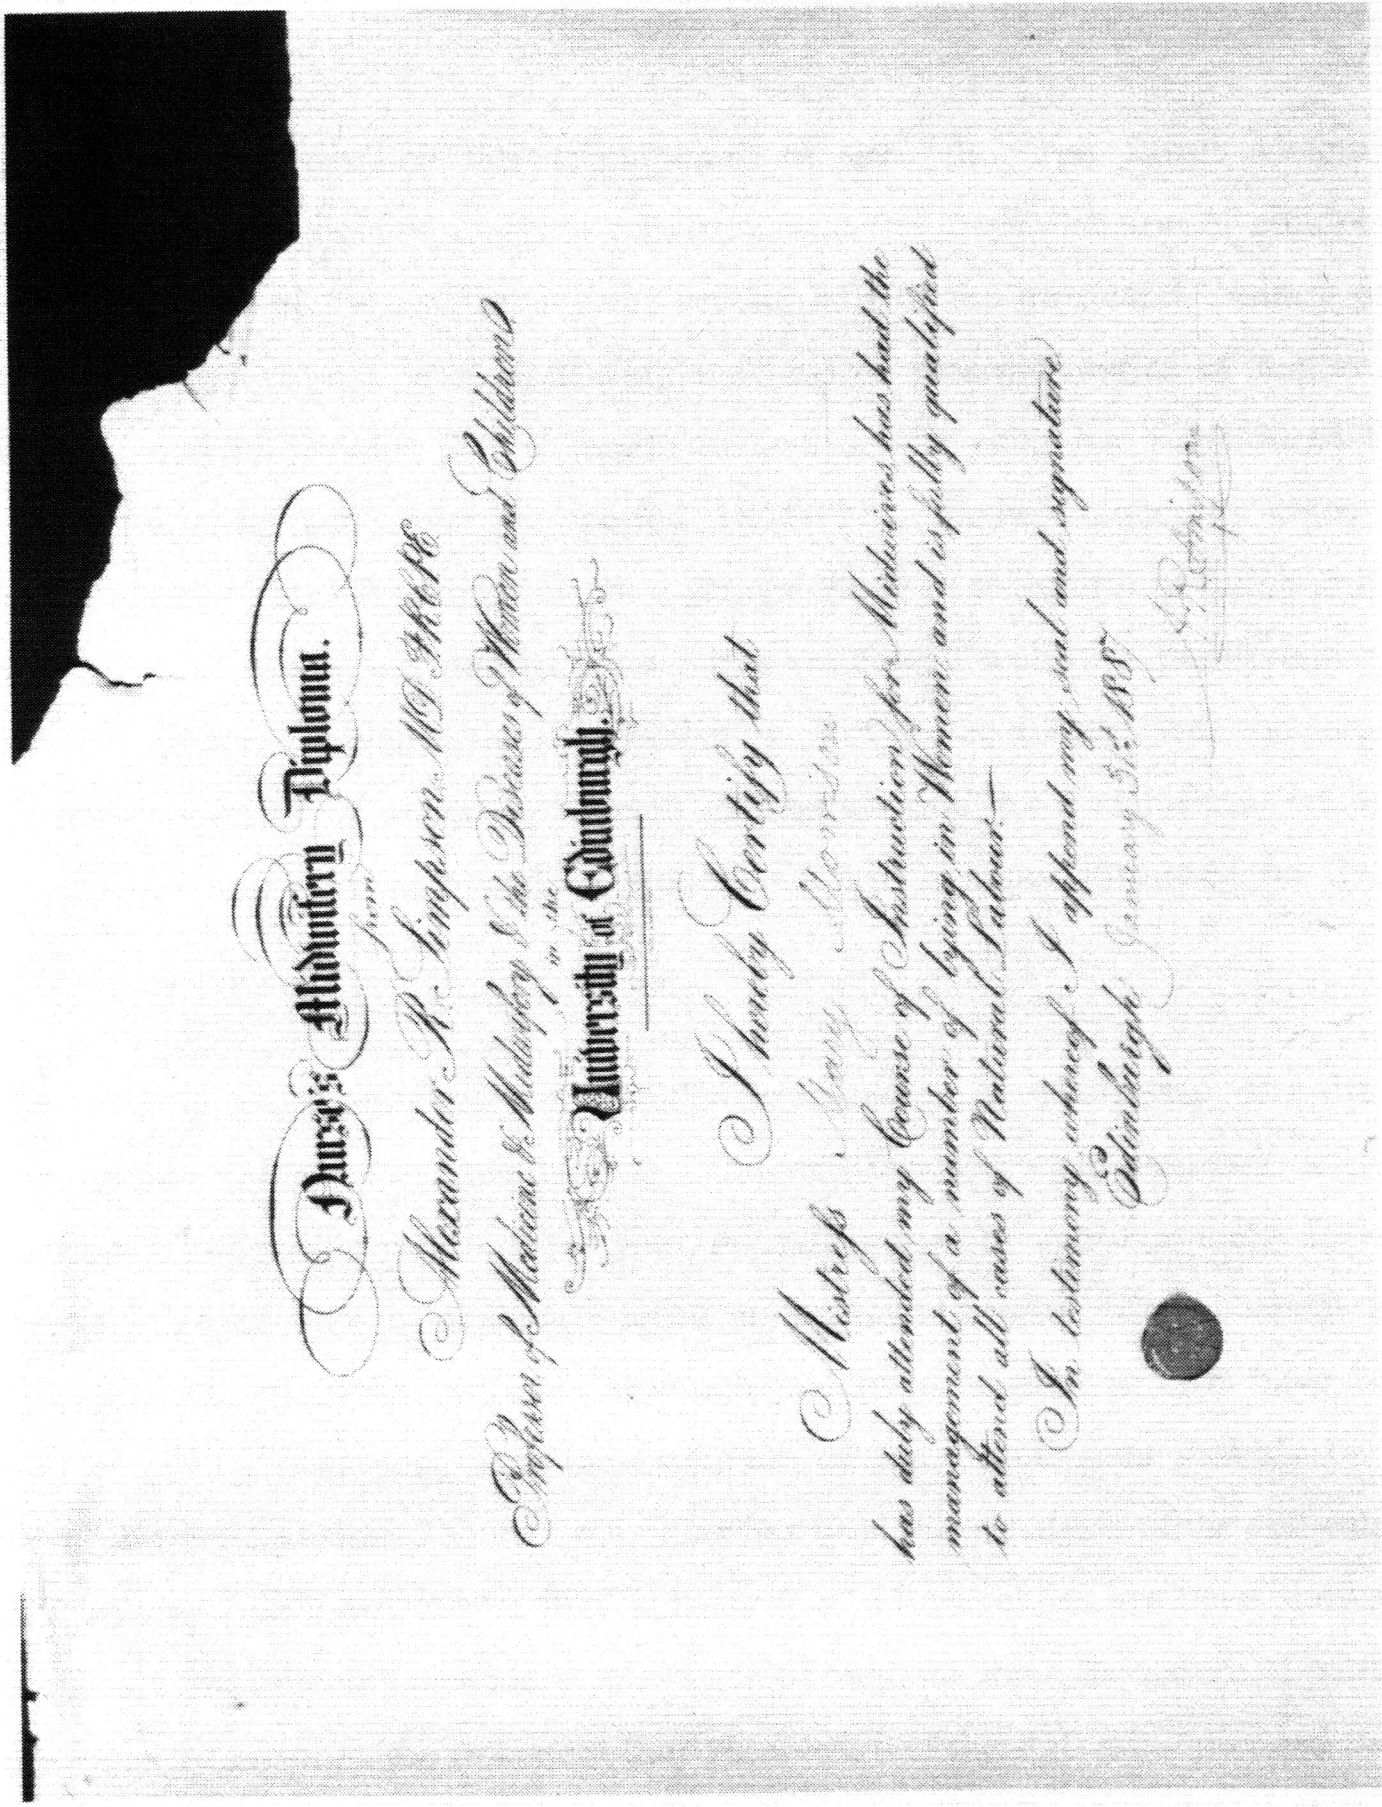 Nurse's Midwifery Diploma.
from
Alexander R. Simpson MD FRCPE
Professor of Medicine & Midwifery & the Diseases of Women and Children
in the
University of Edinburgh.
I hereby Certify that
Mistress Mary
has duly attended my Course of Instruction for Midwives has had the
management of a number of lying in Women and is fully qualified
to attend all cases of Natural Labour
In testimony whereof I append my seal and signature
Edinburgh January 1887
A R Simpson